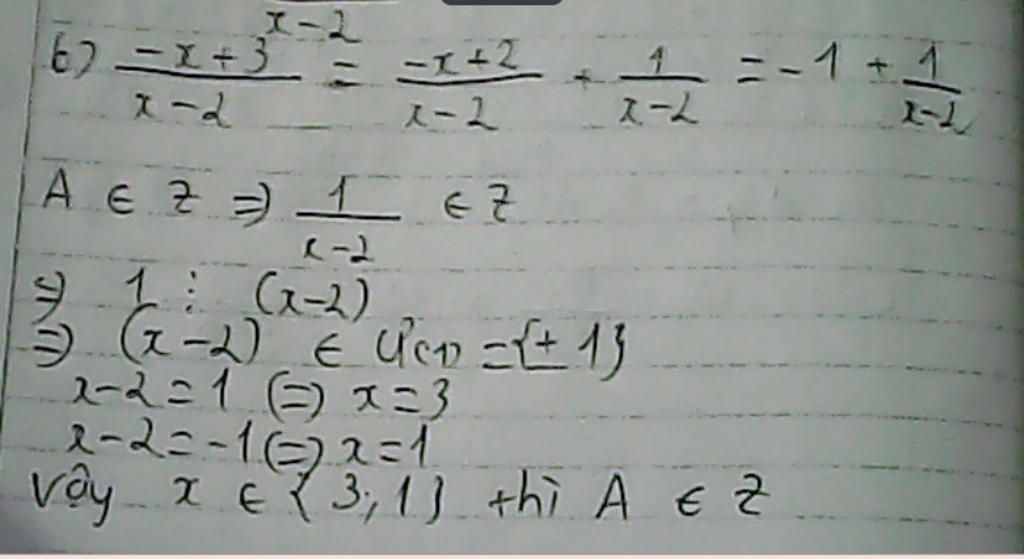 x-2
b) \frac{-x+3}{x-2} = \frac{-x+2}{x-2} + \frac{1}{x-2} = -1 + \frac{1}{x-2}
A ∈ Z ⇒ \frac{1}{x-2} ∈ Z
⇒ 1 ⋮ (x-2)
⇒ (x-2) ∈ Ư(1) = {± 1}
x-2 = 1 (=) x = 3
x-2 = -1 (=) x = 1
Vậy x ∈ { 3; 1} thì A ∈ Z